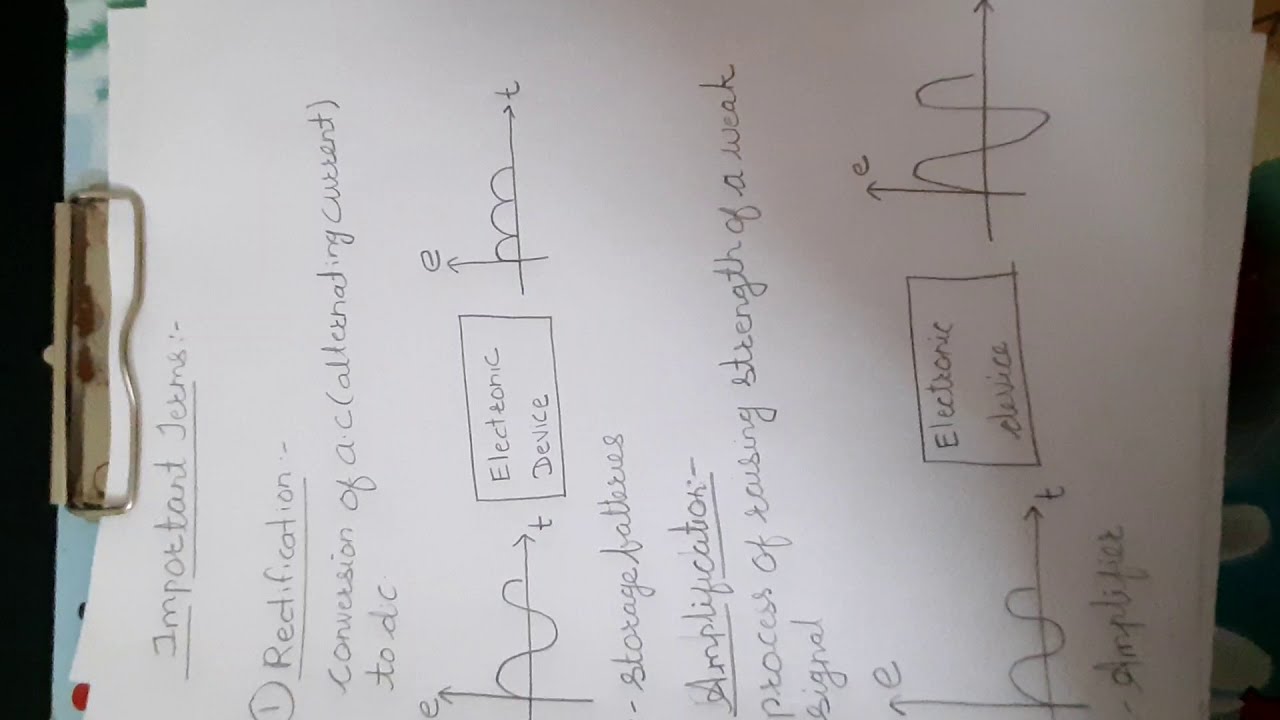 Important Terms:-
① Rectification:-
Conversion of a.c (alternating current)
to d.c.
e
t
Electronic
Device
e
t
- Storage batteries
Amplification:-
process of raising strength of a weak
signal
e
t
Electronic
device
e
- Amplifier